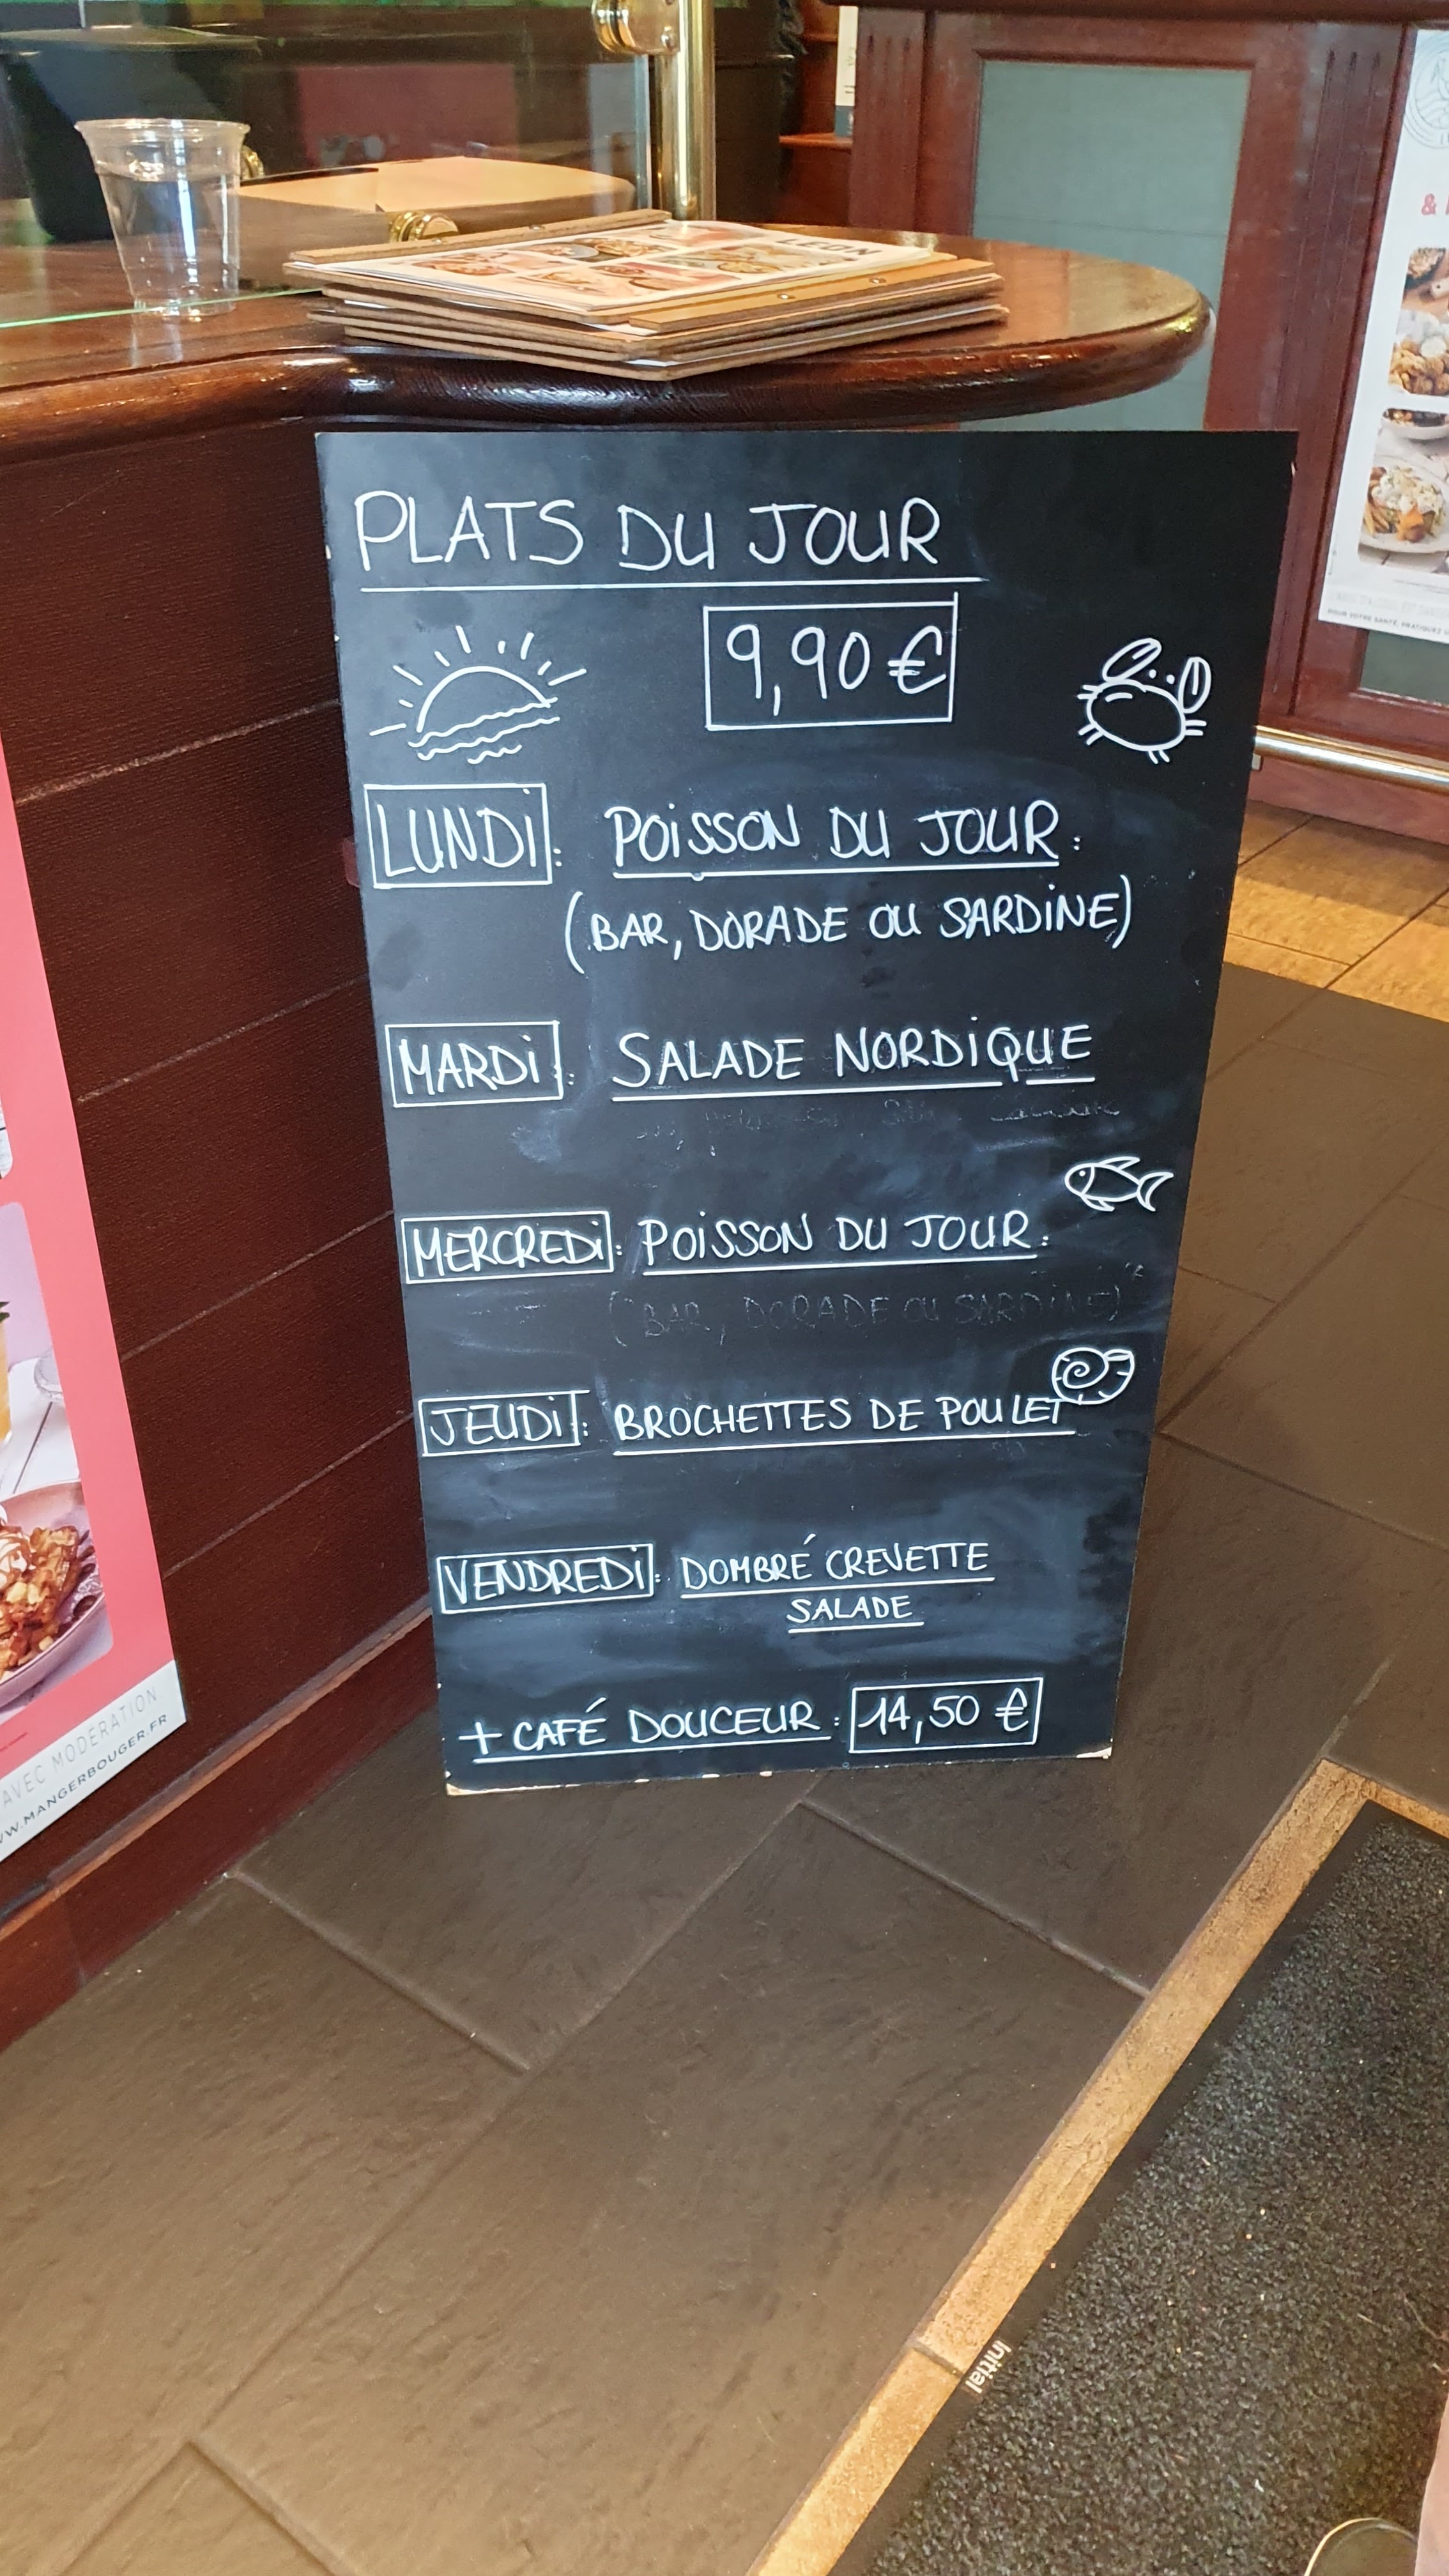 LEON
PLATS DU JOUR
9,90 €
LUNDI : POISSON DU JOUR :
(BAR, DORADE OU SARDINE)
MARDI : SALADE NORDIQUE
MERCREDI : POISSON DU JOUR :
(BAR, DORADE OU SARDINE)
JEUDI : BROCHETTES DE POULET
VENDREDI : DOMBRÉ CREVETTE
SALADE
+ CAFÉ DOUCEUR : 14,50 €
AVEC MODÉRATION
WW.MANGERBOUGER.FR
POUR VOTRE SANTÉ, PRATIQUEZ
&
Initial